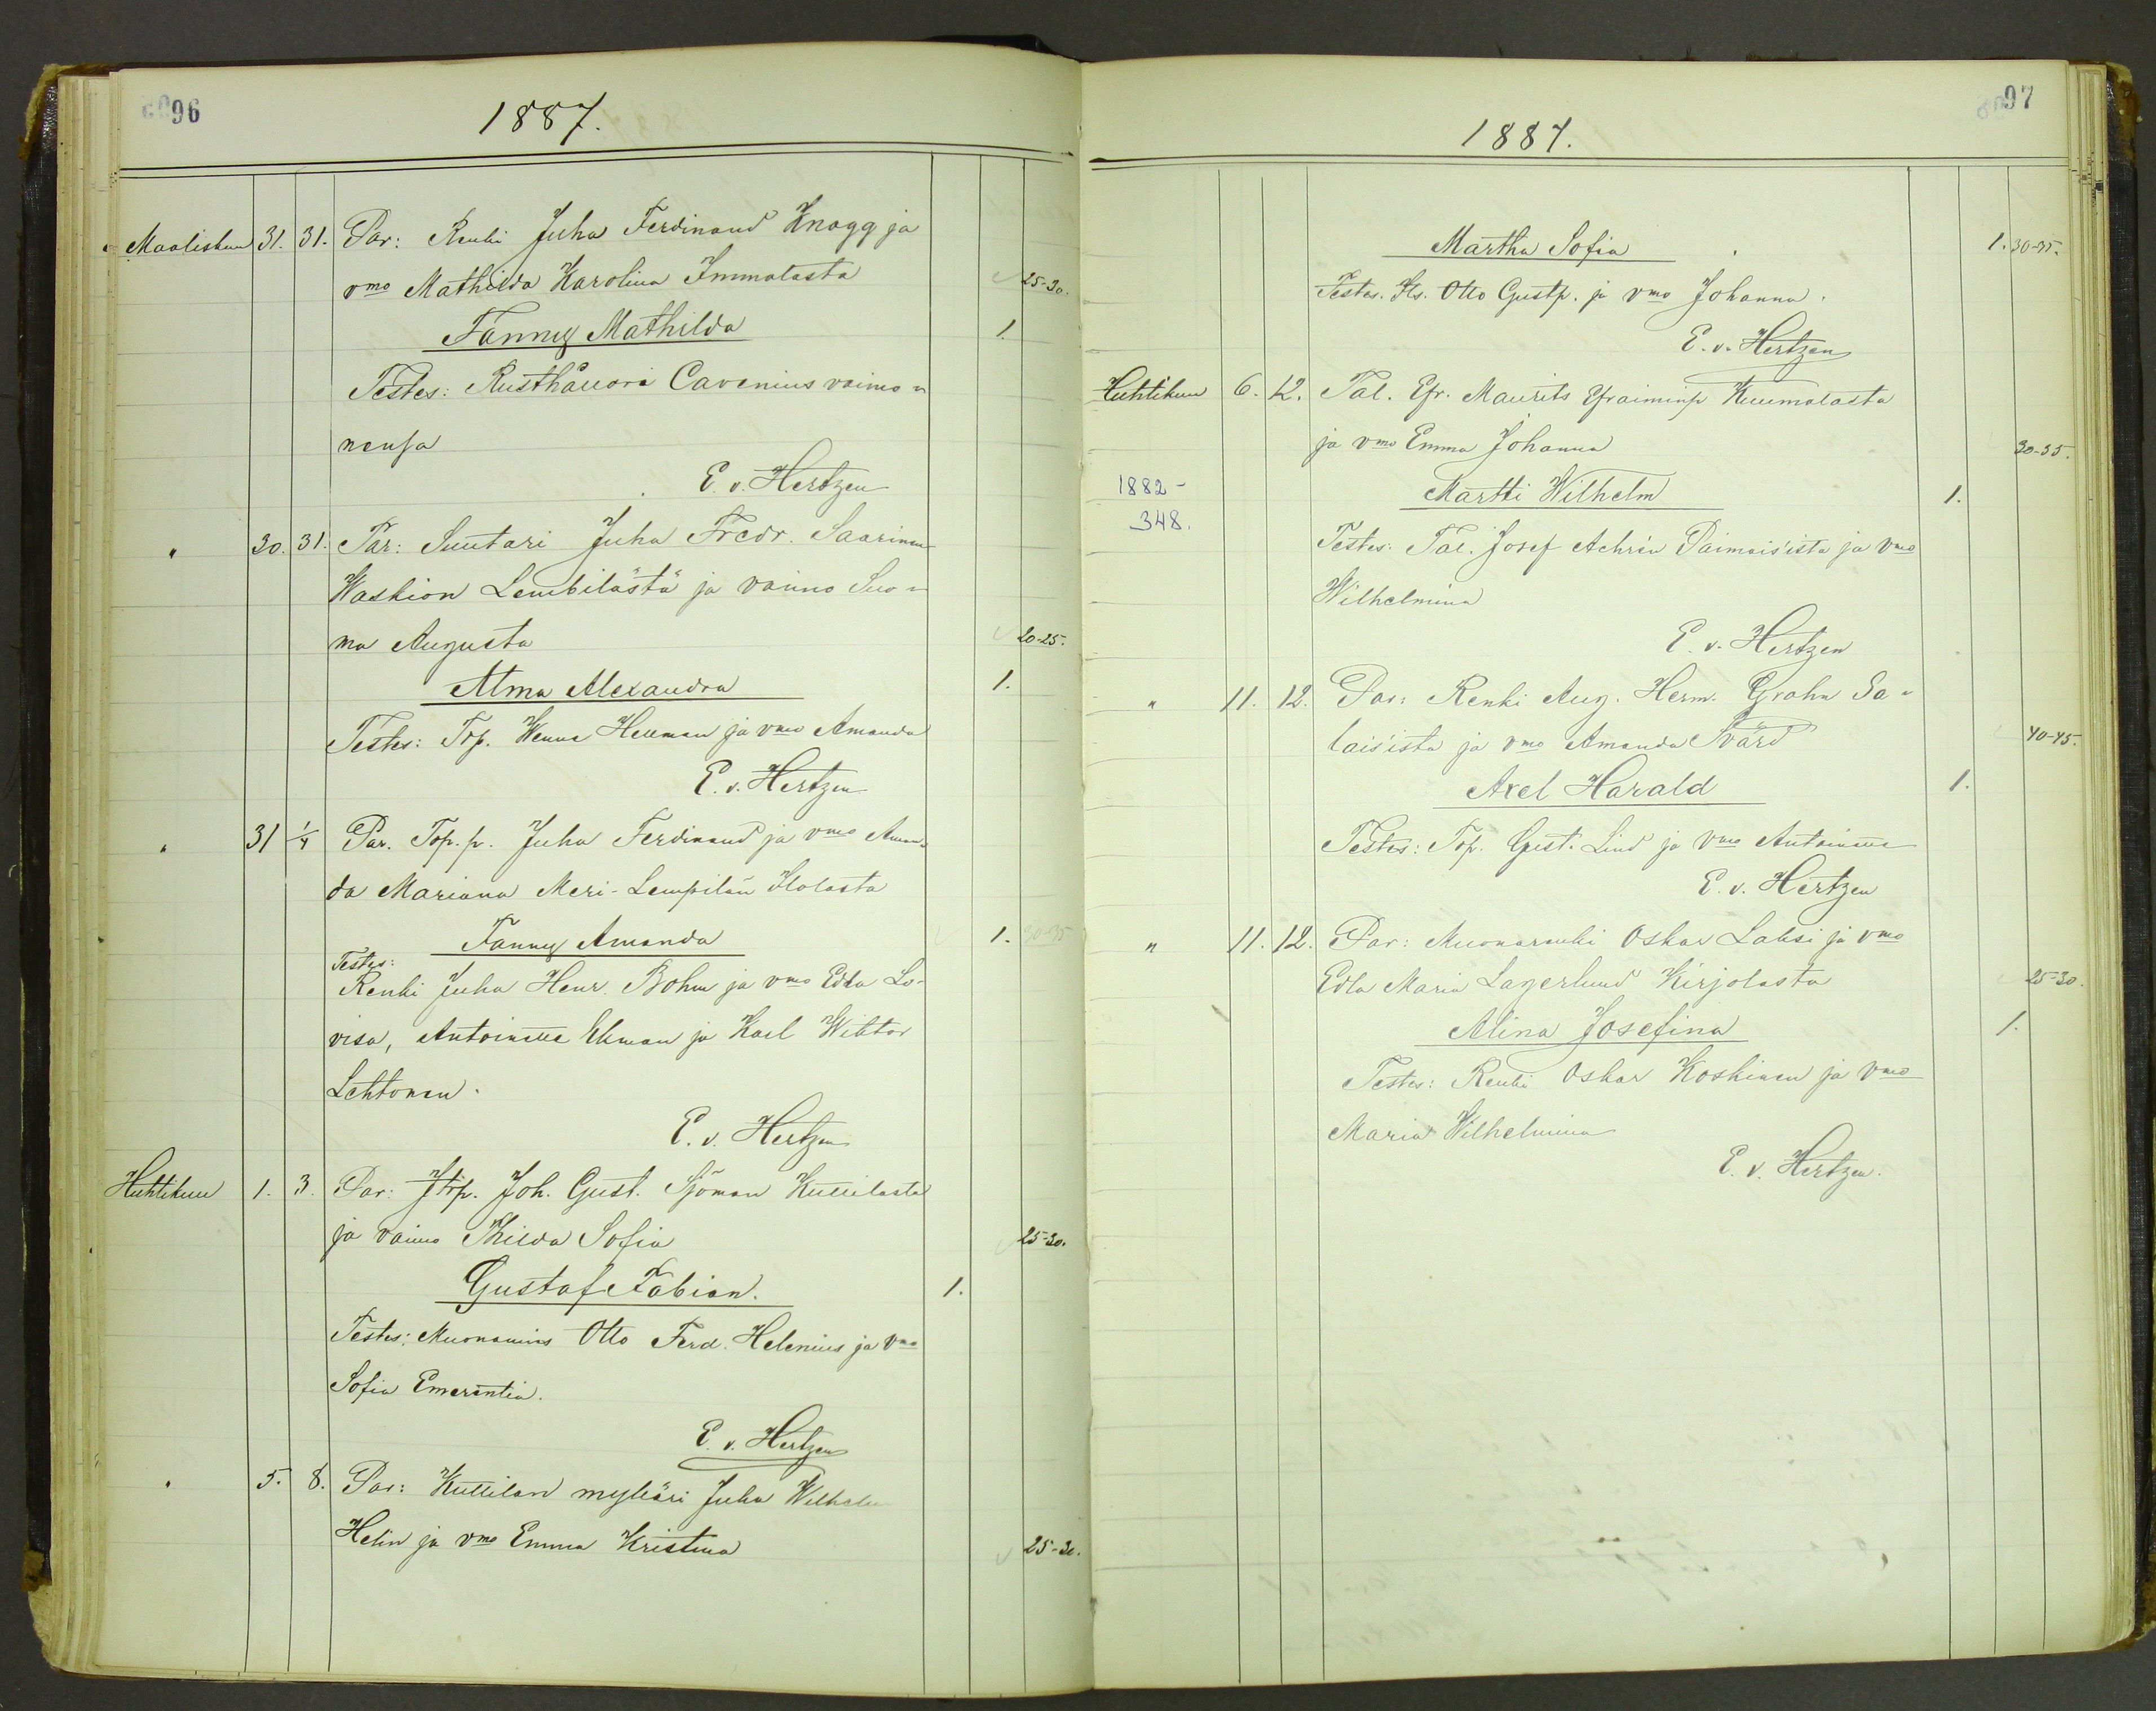 96
1887.
Maaliskuu 31. 31. Par: Renki Juha Ferdinand Knagg ja
vmo Mathilda Karolina Immalasta 25-30.
Fanny Mathilda 1.
Testes: Rusthållari Cavenius vaimo-
nensa
E. v. Hertzen
" 30. 31. Par: Suutari Juha Fredr. Saarinen
Waskion Lembilästä ja vaimo Suo-
ma Augusta 20-25.
Alma Alexandra 1.
Testes: Trp. Hellman ja vmo Amanda
E. v. Hertzen
" 31 1/4 Par. Top. p. Juha Ferdinand ja vmo Aman-
da Mariana Meri-Lempilän Ilolasta
Fanny Amanda 1. 30-35
Testes:
Renki Juha Henr. Bohm ja vmo Edla Lo-
visa, Antoinette Ekman ja Karl Wiktor
Lehtonen.
E. v. Hertzen
Huhtikuu 1. 3. Par: Itsp. Joh. Gust. Sjöman Kullilasta
ja vaimo Hilda Sofia 25-30.
Gustaf Fabian. 1.
Testes: Muonamies Otto Ferd. Helenius ja vmo
Sofia Emerentia.
E. v. Hertzen
" 5. 8. Par: Kullilan mylläri Juha Wilhelm
Helin ja vmo Emma Kristina 25-30.
97
1887.
Martha Sofia 1. 30-35.
Testes. Its. Otto Gustp. ja vmo Johanna.
E. v. Hertzen
Huhtikuu 6. 12. Tal. Efr. Maurits Efraiminp Kuumolasta
ja vmo Emma Johanna 30-35.
1882-
348.
Martti Wilhelm 1.
Testes: Tal. Josef Achrén Paimaisista ja vmo
Wilhelmina
E. v. Hertzen
" 11. 12. Par: Renki Aug. Herm. Grahn Sa-
laisista ja vmo Amanda Svärd 40-45.
Axel Harald 1.
Testes: Top. Gust. Lind ja vmo Antoinette
E. v. Hertzen
" 11. 12. Par: Muonarenki Oskar Laksi ja vmo
Edla Maria Lagerlund Kirjolasta 25-30.
Alina Josefina 1.
Testes: Renki Oskar Koskinen ja vmo
Maria Wilhelmina
E. v. Hertzen.